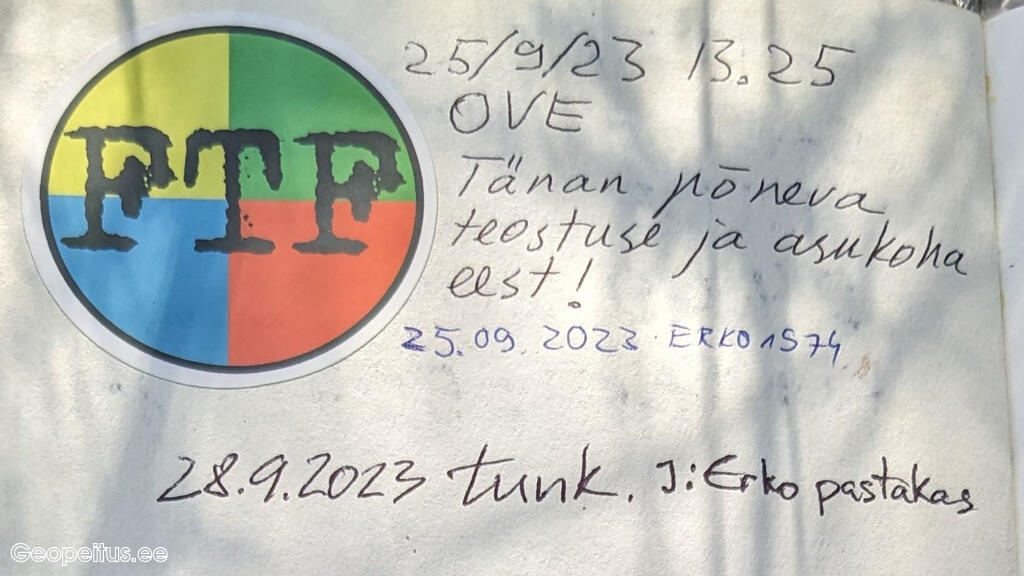 FTF
25/9/23 13.25
OVE
Tänan põneva
teostuse ja asukoha
eest!
25.09.2023 ERKO1974
28.9.2023 tunk. J: Erko pastakas
Geopeitus.ee